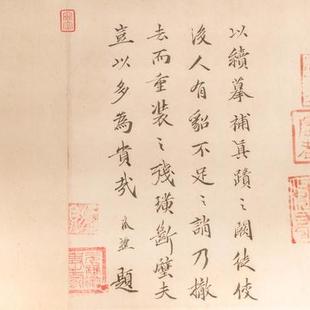 以續摹補真蹟之闕徒使
後人有貂不足之誚乃撤
去而重装之殘璜斷璧夫
豈以多為貴哉
題